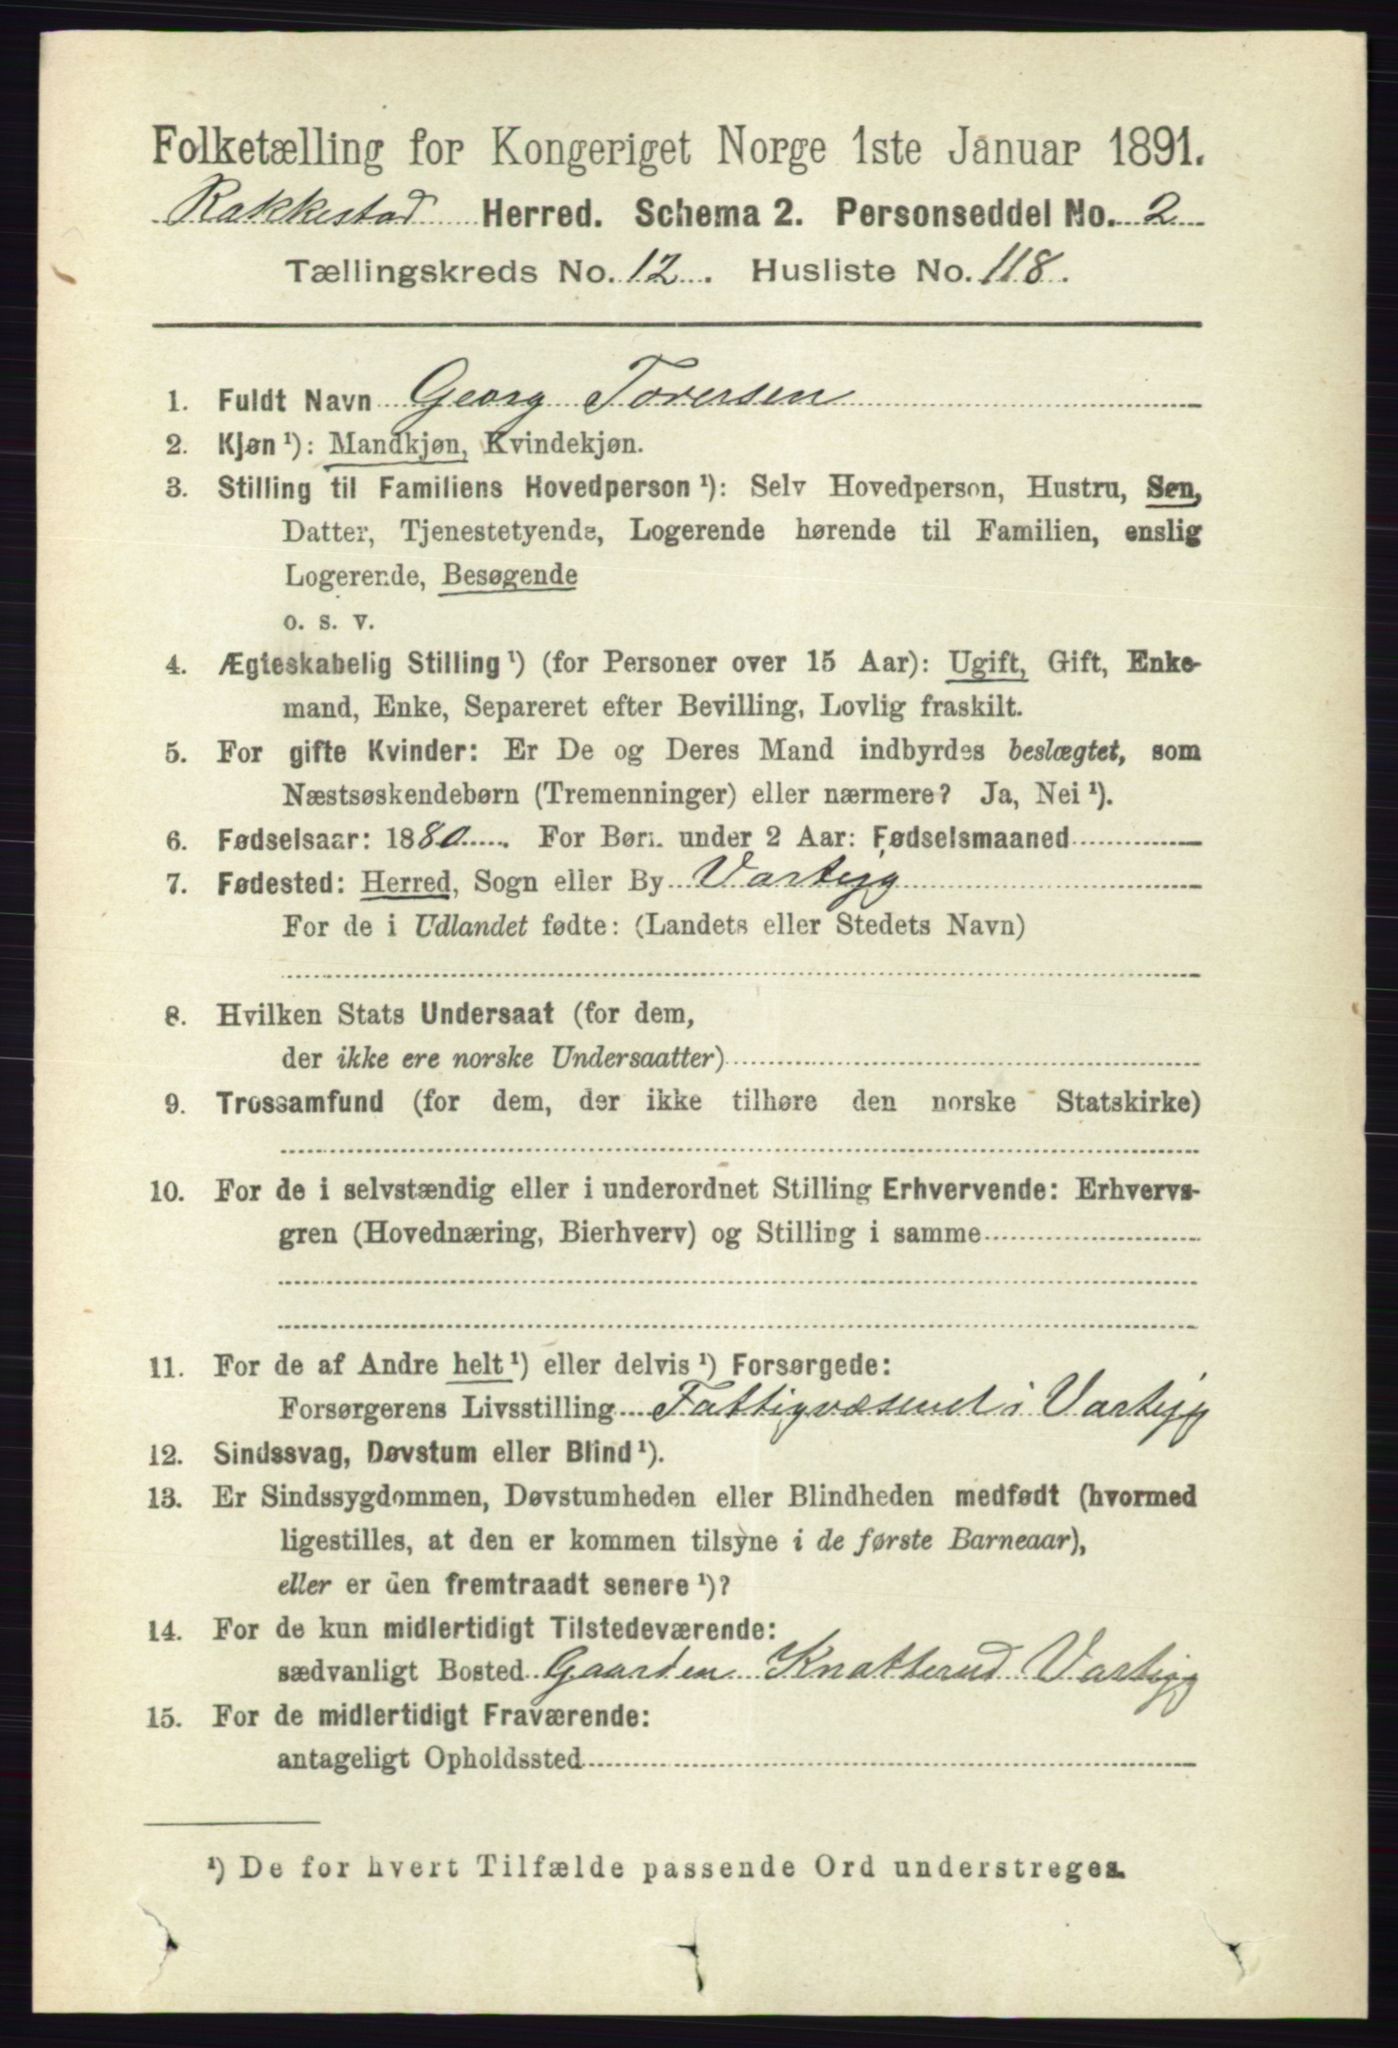 Folketælling for Kongeriget Norge 1ste Januar 1891.
Rakkestad Herred. Schema 2. Personseddel No. 2
Tællingskreds No. 12. Husliste No. 118.
1. Fuldt Navn Georg Toversen
2. Kjøn ¹): Mandkjøn, Kvindekjøn.
3. Stilling til Familiens Hovedperson ¹): Selv Hovedperson, Hustru, Søn,
Datter, Tjenestetyende, Logerende hørende til Familien, enslig
Logerende, Besøgende
o. s. v.
4. Ægteskabelig Stilling ¹) (for Personer over 15 Aar): Ugift, Gift, Enke-
mand, Enke, Separeret efter Bevilling, Lovlig fraskilt.
5. For gifte Kvinder: Er De og Deres Mand indbyrdes beslægtet, som
Næstsøskendebørn (Tremenninger) eller nærmere? Ja, Nei ¹).
6. Fødselsaar: 1880. For Børn under 2 Aar: Fødselsmaaned
7. Fødested: Herred, Sogn eller By Varteig
For de i Udlandet fødte: (Landets eller Stedets Navn)
8. Hvilken Stats Undersaat (for dem,
der ikke ere norske Undersaatter)
9. Trossamfund (for dem, der ikke tilhøre den norske Statskirke)
10. For de i selvstændig eller i underordnet Stilling Erhvervende: Erhvervs-
gren (Hovednæring, Bierhverv) og Stilling i samme
11. For de af Andre helt ¹) eller delvis ¹) Forsørgede:
Forsørgerens Livsstilling Fattigvæsenet i Varteig
12. Sindssvag, Døvstum eller Blind ¹).
13. Er Sindssygdommen, Døvstumheden eller Blindheden medfødt (hvormed
ligestilles, at den er kommen tilsyne i de første Barneaar),
eller er den fremtraadt senere ¹)?
14. For de kun midlertidigt Tilstedeværende:
sædvanligt Bosted Gaarden Knatterud Varteig
15. For de midlertidigt Fraværende:
antageligt Opholdssted
¹) De for hvert Tilfælde passende Ord understreges.